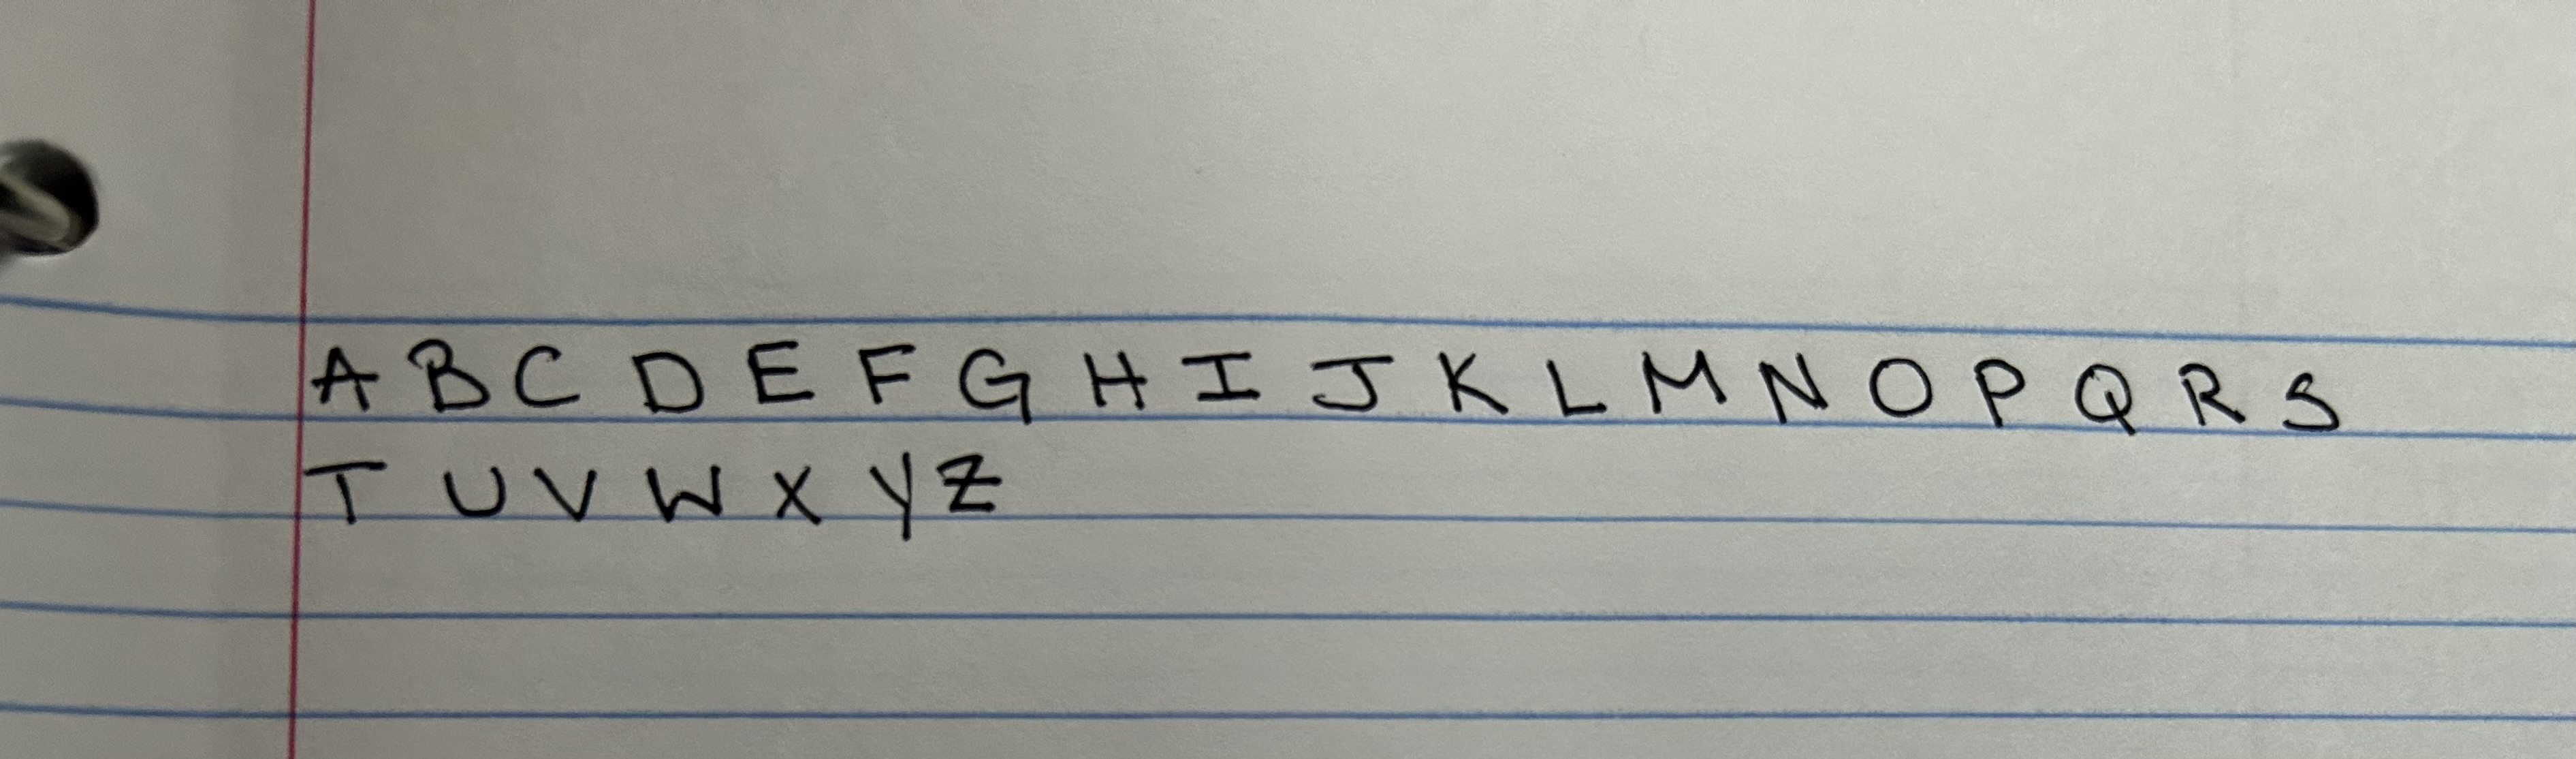 A B C D E F G H I J K L M N O P Q R S
T U V W X Y Z